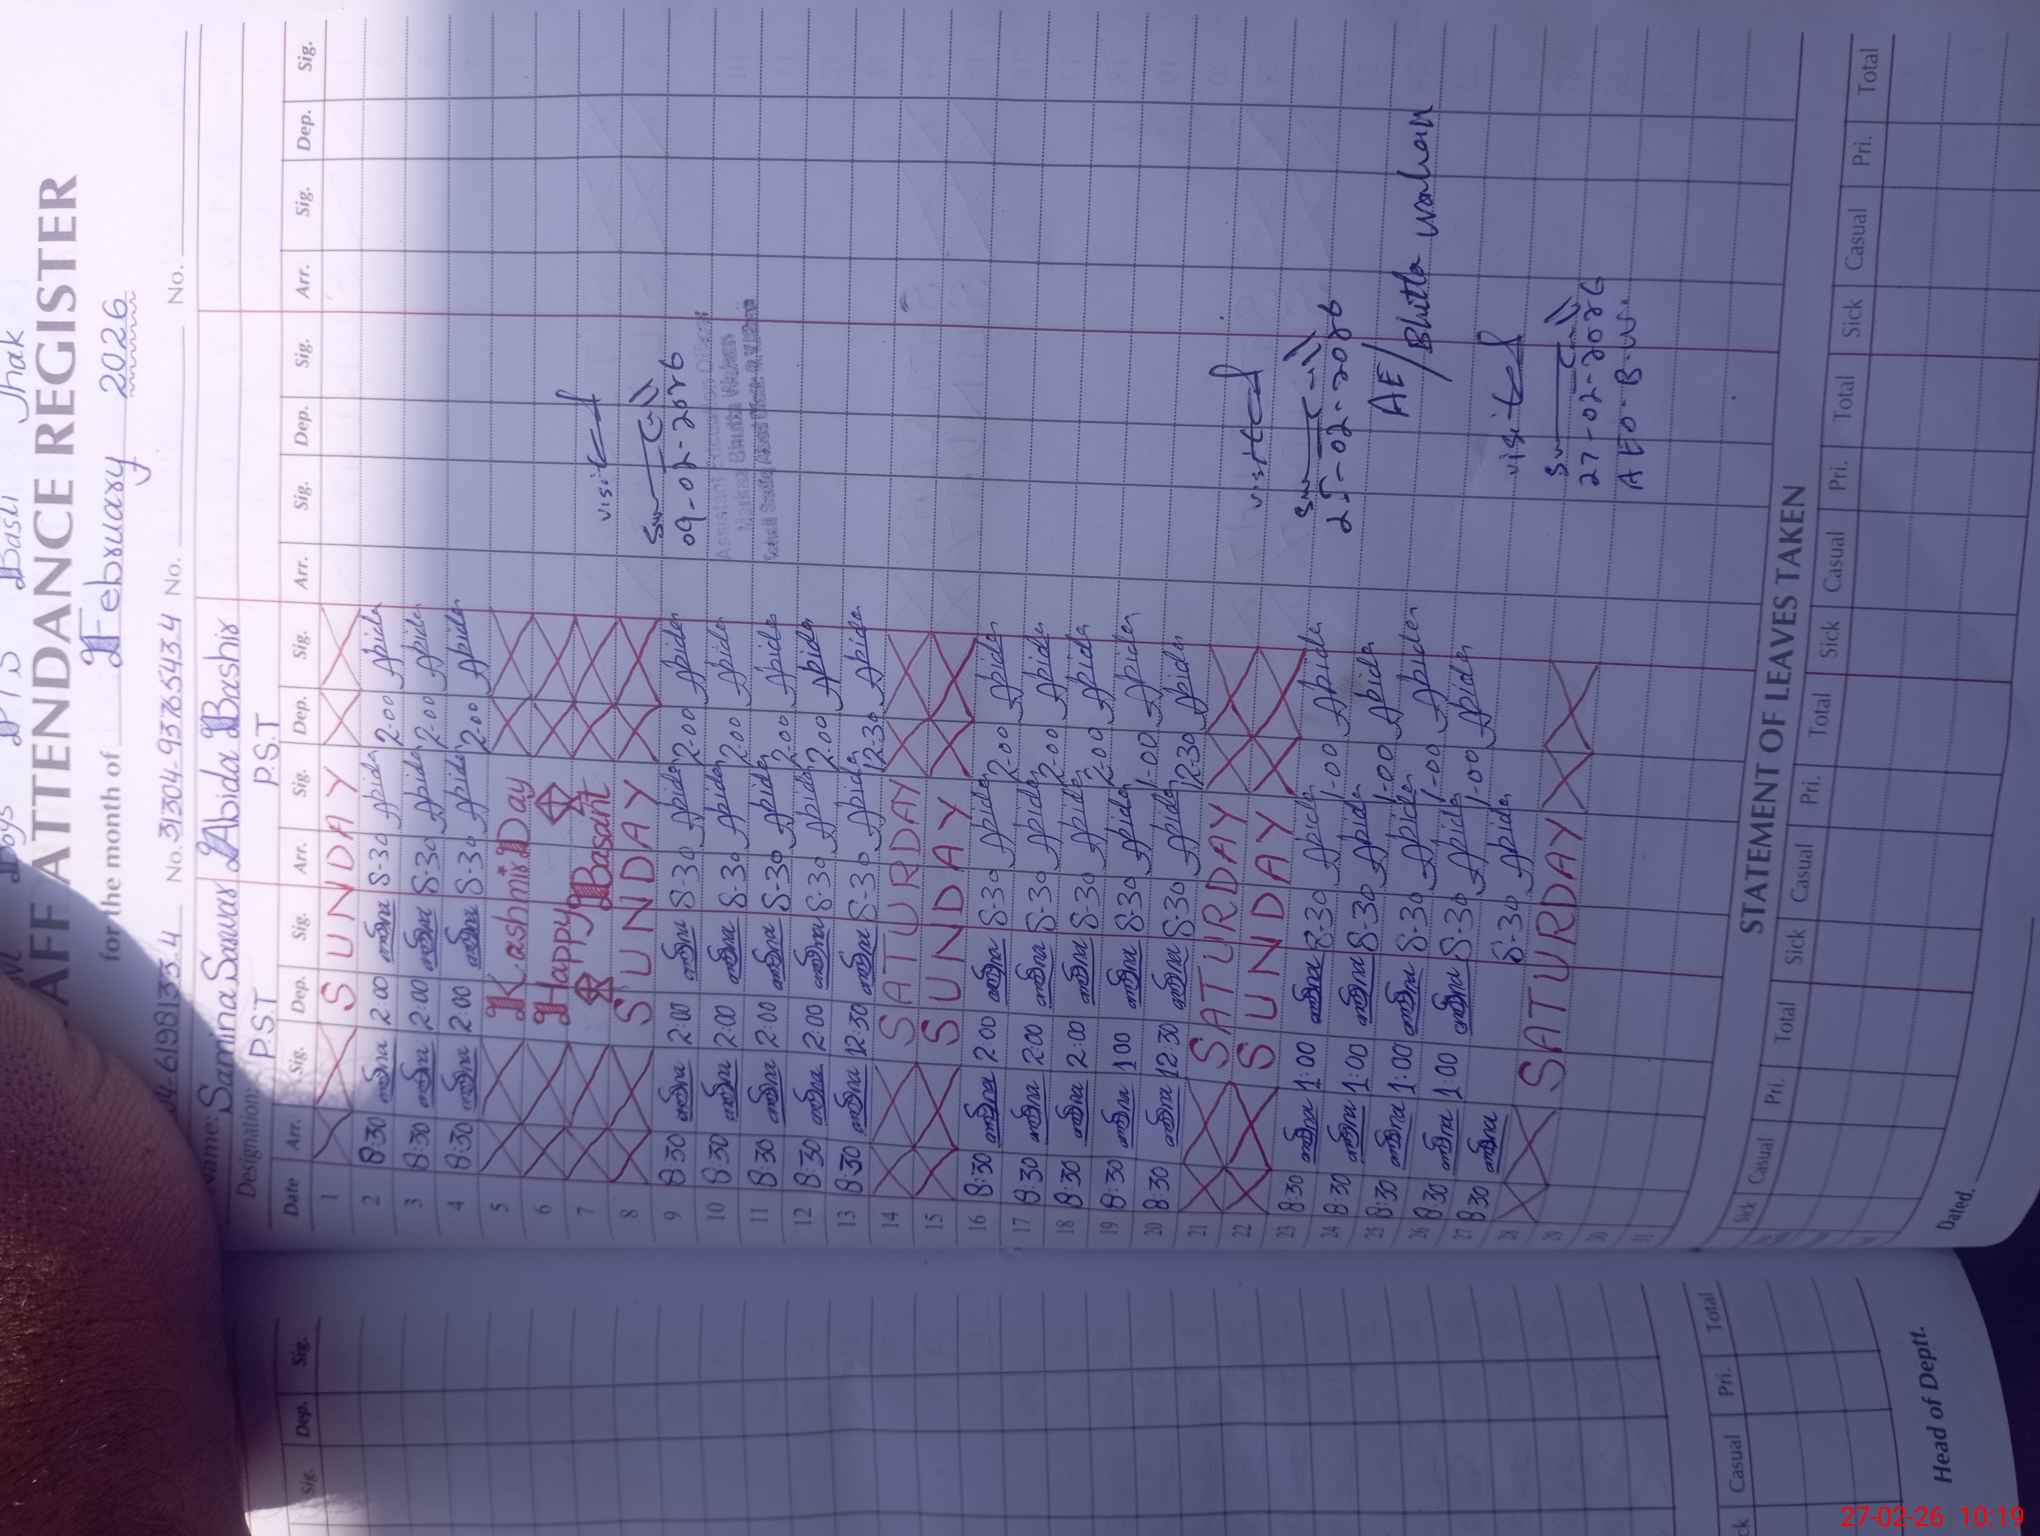 Boys P/S Basti Jhak
AFF ATTENDANCE REGISTER
for the month of February 2026
04-6198133.4 No. 31304-9376543.4 No. No.
Name: Samina Sarwar Abida Bashir
Designation: P.S.T P.S.T
Date Arr. Sig. Dep. Sig. Arr. Sig. Dep. Sig. Arr. Sig. Dep. Sig. Arr. Sig. Dep. Sig.
1 SUNDAY
2 8:30 2:00 8-30 Abida 2-00 Abida
3 8:30 2:00 8-30 Abida 2-00 Abida
4 8:30 2:00 8-30 Abida 2-00 Abida
5 Kashmir Day
6 Happy
7 Basant
8 SUNDAY
visited
9 8:30 2:00 8-30 Abida 2-00 Abida
09-02-2026
10 8:30 2:00 8-30 Abida 2-00 Abida
11 8:30 2:00 8-30 Abida 2-00 Abida
12 8:30 2:00 8-30 Abida 2-00 Abida
13 8:30 12:30 8-30 Abida 12-30 Abida
14 SATURDAY
15 SUNDAY
16 8:30 2:00 8-30 Abida 2-00 Abida
17 8:30 2:00 8-30 Abida 2-00 Abida
18 8:30 2:00 8-30 Abida 2-00 Abida
19 8:30 1:00 8-30 Abida 1-00 Abida
20 8:30 12:30 8-30 Abida 12-30 Abida
21 SATURDAY
22 SUNDAY
visited
23 8:30 1:00 8-30 Abida 1-00 Abida
25-02-2026
24 8:30 1:00 8-30 Abida 1-00 Abida
AE/Bhutta Wahan
25 8:30 1:00 8-30 Abida 1-00 Abida
26 8:30 1:00 8-30 Abida 1-00 Abida
27 8:30 8-30 Abida
visited
28 SATURDAY
27-02-2026
AEO-B.W.
29
30
31
STATEMENT OF LEAVES TAKEN
Sick Casual Pri. Total Sick Casual Pri. Total Sick Casual Pri. Total Sick Casual Pri. Total
Dated.
Sig. Dep. Sig.
ck Casual Pri. Total
Head of Deptt.
27-02-26 10:19